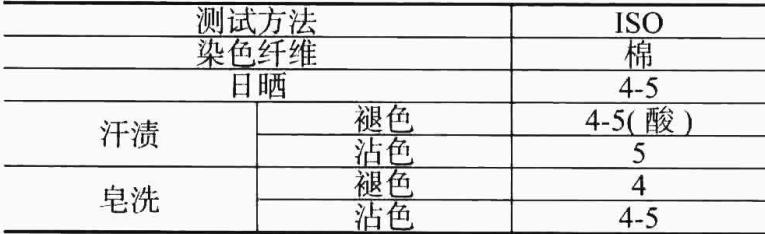 测试方法 ISO
染色纤维 棉
日晒 4-5
汗渍 褪色 4-5( 酸 )
沾色 5
皂洗 褪色 4
沾色 4-5